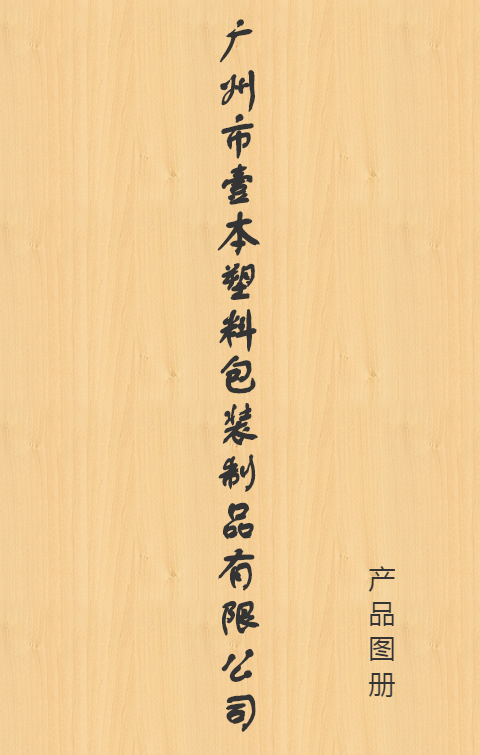 广州市壹本塑料包装制品有限公司
产品图册